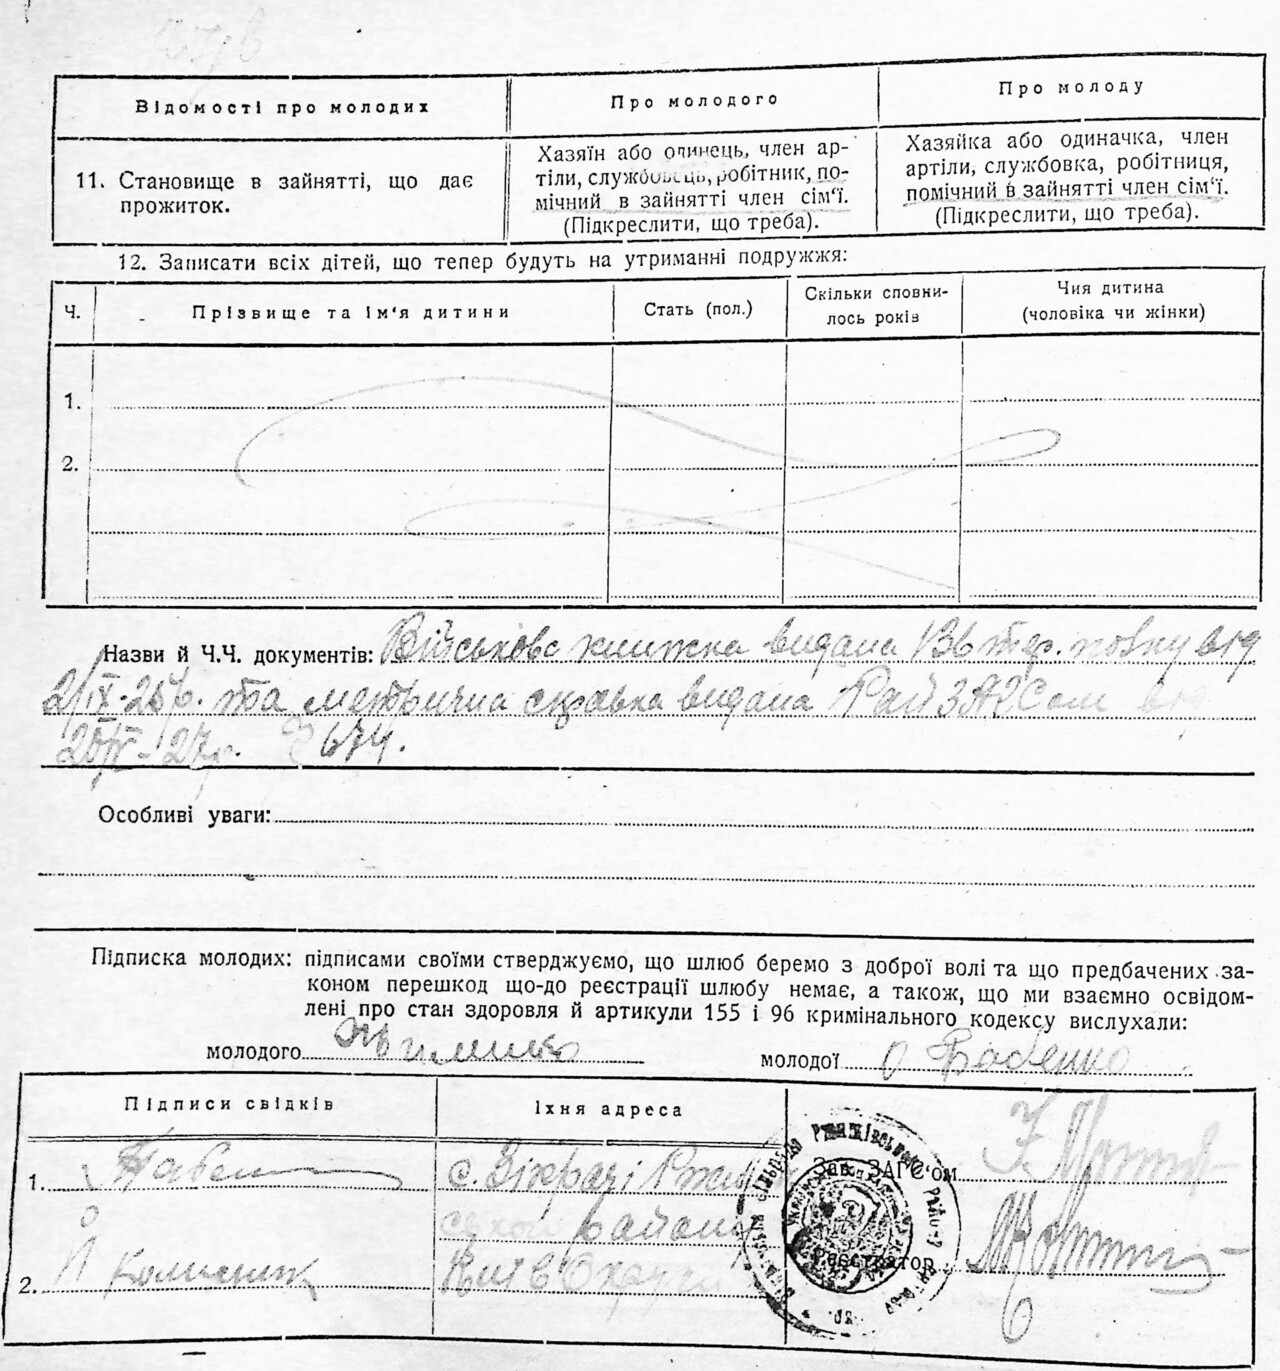 Відомості про молодих
Про молодого
Про молоду
11. Становище в зайнятті, що дає
прожиток.
Хазяїн або одинець, член ар-
тіли, службовець, робітник, по-
мічний в зайнятті член сім'ї.
(Підкреслити, що треба).
Хазяйка або одиначка, член
артіли, службовка, робітниця,
помічний в зайнятті член сім'ї.
(Підкреслити, що треба).
12. Записати всіх дітей, що тепер будуть на утриманні подружжя:
Ч.
Прізвище та ім'я дитини
Стать (пол.)
Скільки сповни-
лось років
Чия дитина
(чоловіка чи жінки)
1.
2.
Назви й Ч.Ч. документів: Військова книжка видана 136 тер. полку від
2/IX-25р. та метрична справка видана РайЗАГСом від
674.
Особливі уваги:
Підписка молодих: підписами своїми стверджуємо, що шлюб беремо з доброї волі та що предбачених за-
коном перешкод що-до реєстрації шлюбу немає, а також, що ми взаємно освідом-
лені про стан здоровля й артикули 155 і 96 кримінального кодексу вислухали:
молодого
молодої О Бабенко
Підписи свідків
Їхня адреса
1.
с.
Зав. ЗАГС'ом
району
2.
Київ Округи
Реєстратор